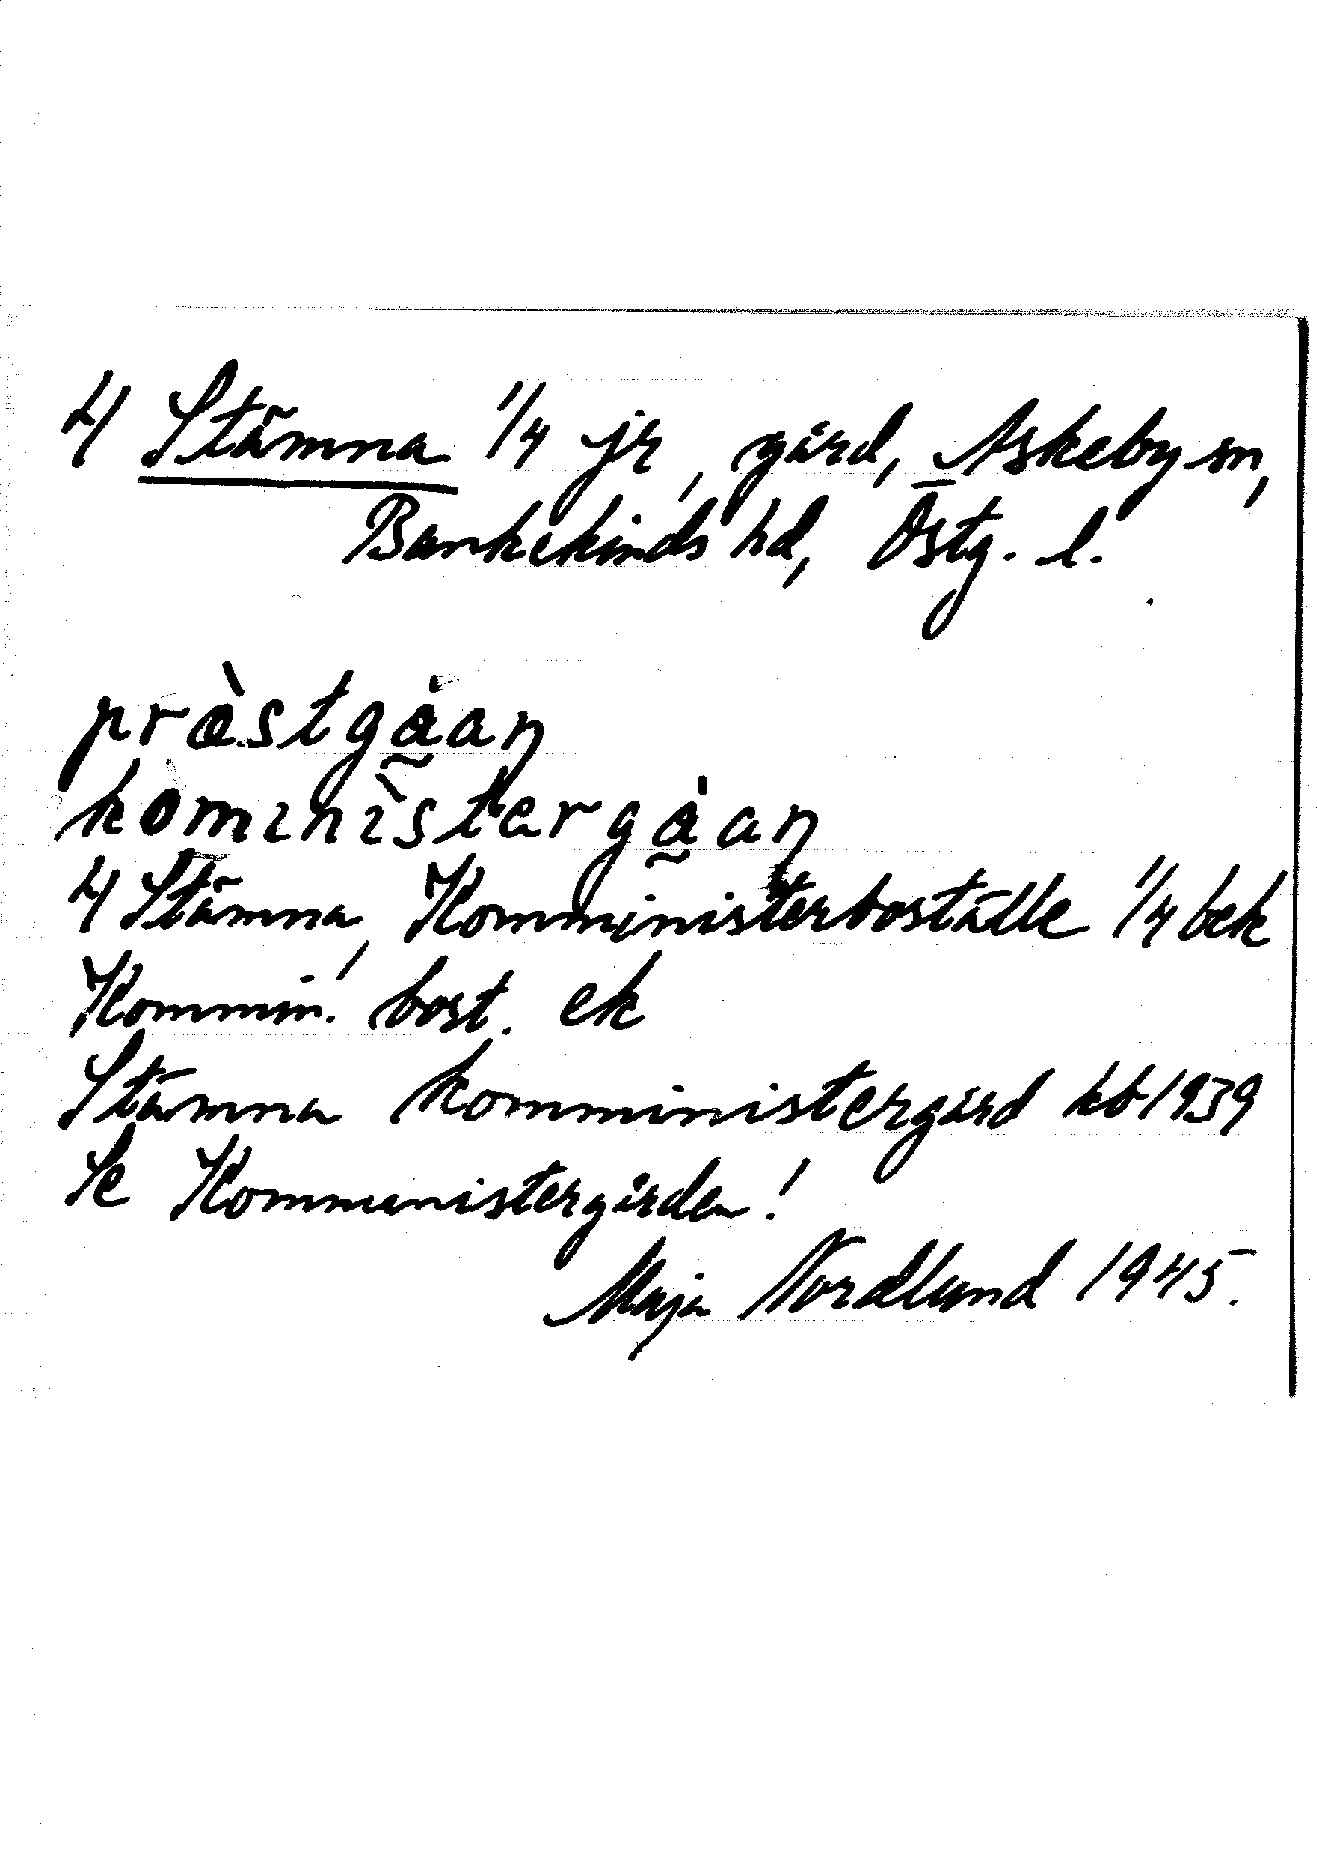 4 Stämna 1/4 jr, gård, Askeby sn,
Bankekinds hd, Östg. l.
præ̀stgå̰an
kominìstergå̰an
4 Stämna, Komministerboställe 1/4 bek
Kommin. bost. ek
Stämna komministergård kb 1939
Se Komministergården!
Maja Nordlund 1945.